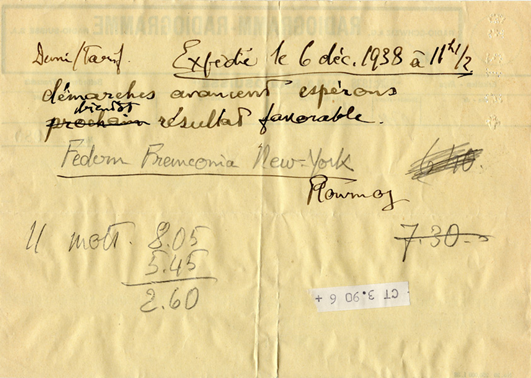 RADIOGRAMM RADIOGRAMME
Demi/Tarif. Expédié le 6 déc. 1938 à 11 h 1/2
démarches avancent espérons
bientôt
prochain résultat favorable.
Federn Franconia New-York
Flournoy 7.30.-
11 mots. 8.05
5.45
2.60
CT 3.90 6 +